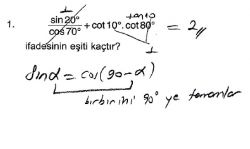 1
tan10°
1. sin20°/cos70° + cot10°.cot80° = 2
1
ifadesinin eşiti kaçtır?
Sinα = cos(90-α)
birbirini 90° ye tamamlar